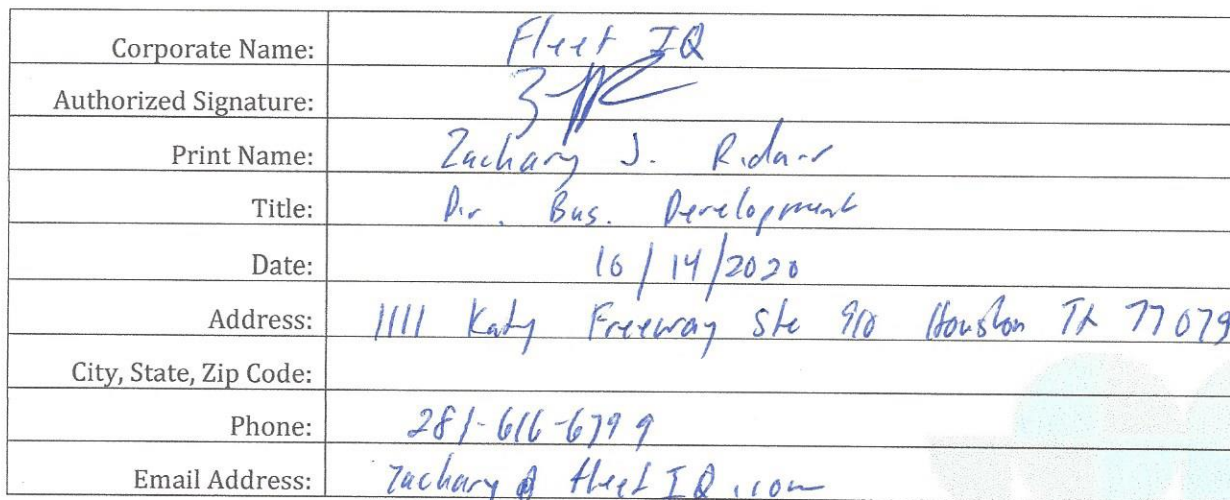 Corporate Name: Fleet IQ
Authorized Signature:
Print Name: Zachary J.
Title: Dir. Bus. Development
Date: 10/14/2020
Address: 1111 Katy Freeway Ste 910 Houston TX 77079
City, State, Zip Code:
Phone: 281-616-6799
Email Address: zachary@fleetIQ.com